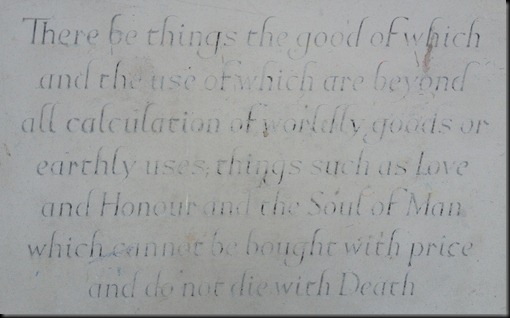 There be things the good of which
and the use of which are beyond
all calculation of worldly goods or
earthly uses; things such as Love
and Honour and the Soul of Man
which cannot be bought with price
and do not die with Death